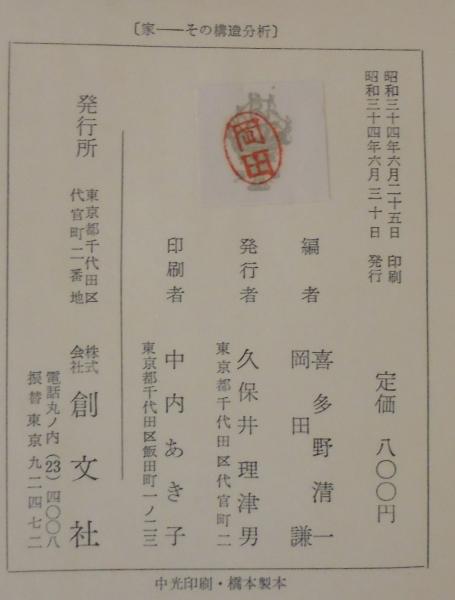 〔家――その構造分析〕
昭和三十四年六月二十五日 印刷
昭和三十四年六月三十日 発行
定価 八〇〇円
編者
喜多野清一
岡田謙
岡田
発行者 久保井理津男
東京都千代田区代官町二
印刷者 中内あき子
東京都千代田区飯田町一ノ二三
発行所
東京都千代田区
代官町二番地
株式会社 創文社
電話丸ノ内(23)四〇〇八
振替東京九二四七二
中光印刷・橋本製本